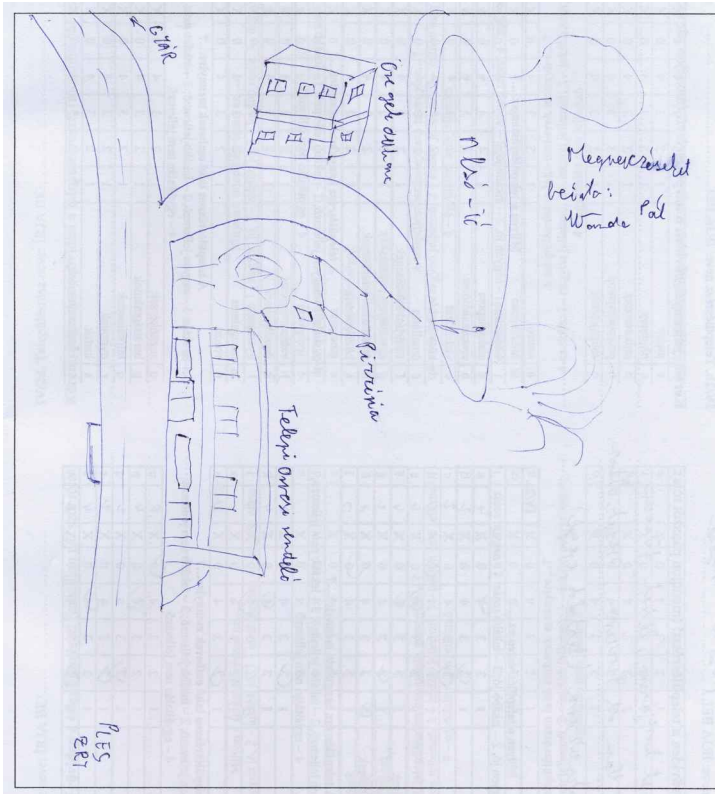 GYÁR
Öregek otthona
Alsó-tó
Megnevezéseket
beírta:
Wanda Pál
Pizzéria
Telepi Orvosi rendelő
PLES
ZRT